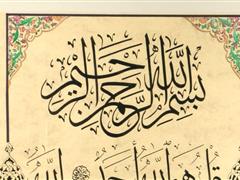 بسم الله الرحمن الرحيم
قل هو الله أحد الله